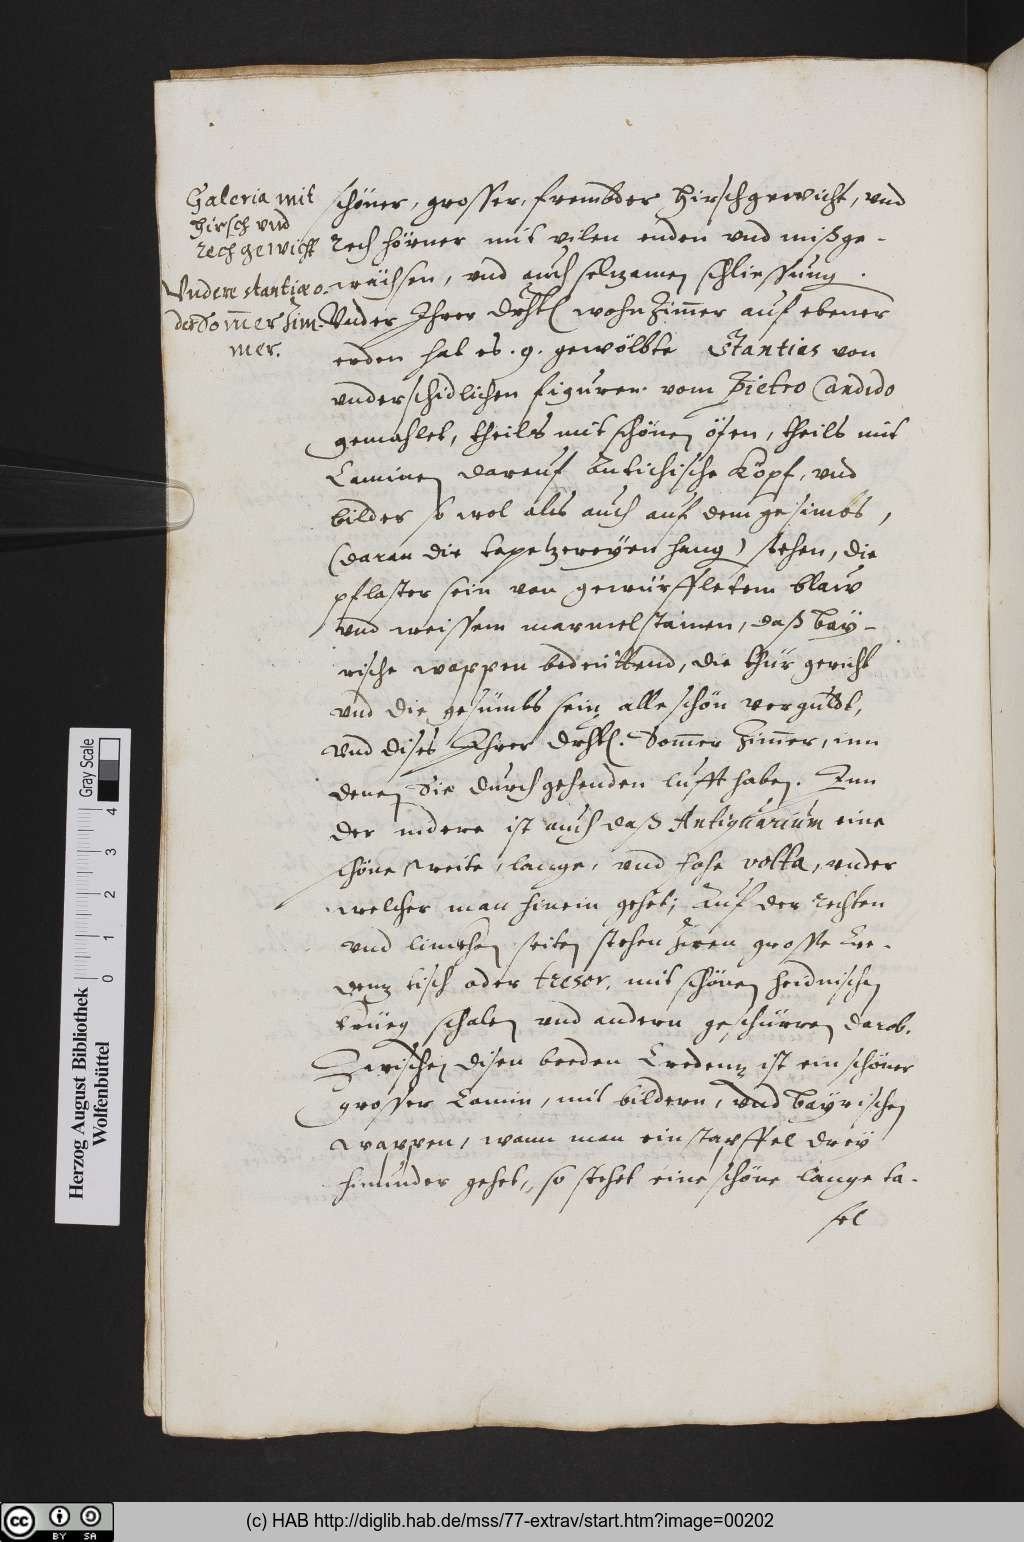 Galeria mit
hirsch vnd
rech gewicht
Undere stantiæ o-
der Som̄er Zim-
mer.
schöner, grosser, frembder hirschgewicht, vnd
rech hörner mit vilen enden vnd mißge-
wächsen, vnd auch selzamen schliessung.
Vnder Ihrer Drhtl wohn Zim̄er auf ebener
erden hat es .9. gewölbte Stantias von
vnderschidlichen figuren vom Pietro Candido
gemahlet, theils mit schönen öfen, theils mit
Caminen darauf Antichische köpf, vnd
bilder so wol als auch auf dem gesimbs,
(daran die tapetzereyen hang) stehen, die
pflaster sein von gewürffletem blaw
vnd weissem marmelstainen, daß bay-
rische wappen bedeüttend, die thür gericht
vnd die gesimbs sein alle schön verguldt,
vnd dises Ihrer Drhtl. Som̄er Zim̄er, inn
denen Sie durchgehenden lufft haben. Inn
der ndere ist auch daß Antiquarium eine
schöne weite, lange, vnd hohe volta, vnder
welcher man hinein gehet; Auf der rechten
vnd linckhen seiten stehen Zwen grosse Cre-
denz tisch oder tresor, mit schönen heidnischen
krüeg schalen vnd andern geschürren darob.
Zwischen disen beeden Credenz ist ein schöner
grosser Camin, mit bildern, vnd bayrischen
wappen, wann man ein staffel drey
hinunder gehet, so stehet eine schöne lange ta-
fel
Gray Scale
0 1 2 3 4
Herzog August Bibliothek
Wolfenbüttel
cc BY SA
(c) HAB http://diglib.hab.de/mss/77-extrav/start.htm?image=00202